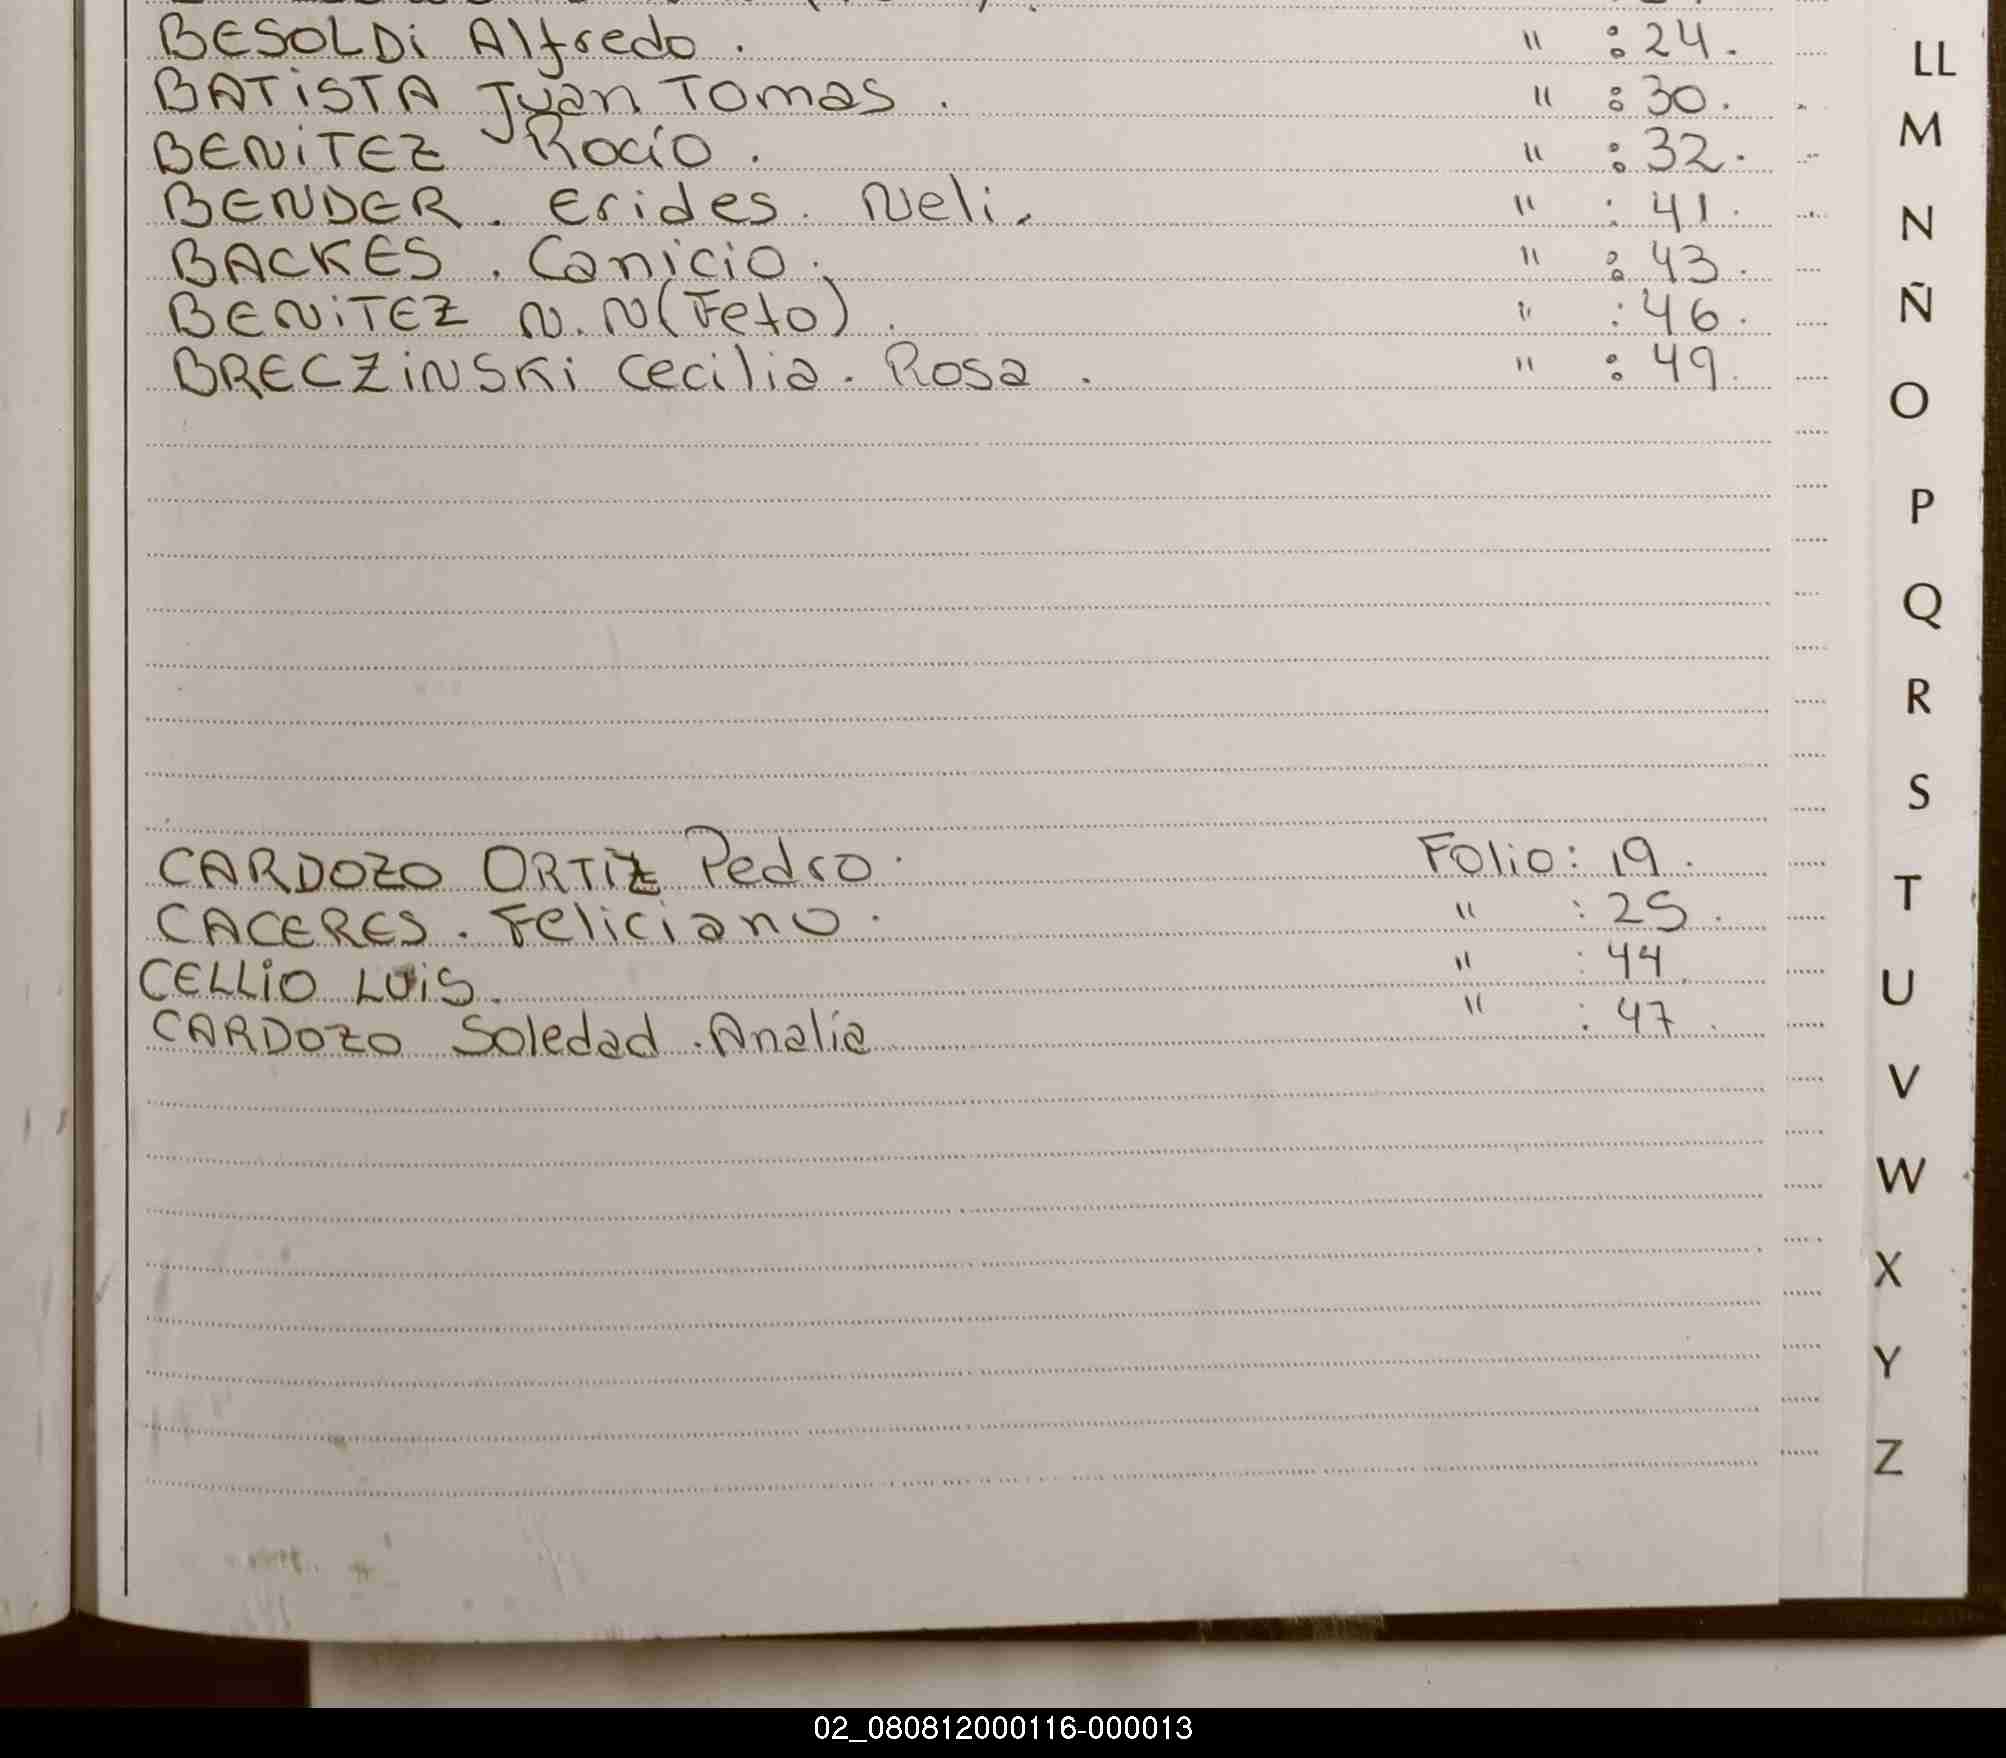 BESOLDi Alfredo. " : 24.
BATiSTA Juan Tomas. " : 30.
BENiTEZ Rocío. " : 32.
BENDER. Erides. Neli. " : 41.
BACKES. Canicio. " : 43.
BENiTEZ N.N(Feto). " : 46.
BRECZiNSKi Cecilia. Rosa. " : 49.
CARDOZO ORTiZ Pedro. Folio: 19.
CACERES. Feliciano. " : 25.
CELLiO LUiS. " : 44.
CARDOZO Soledad. Analía " : 47.
LL
M
N
Ñ
O
P
Q
R
S
T
U
V
W
X
Y
Z
02_080812000116-000013